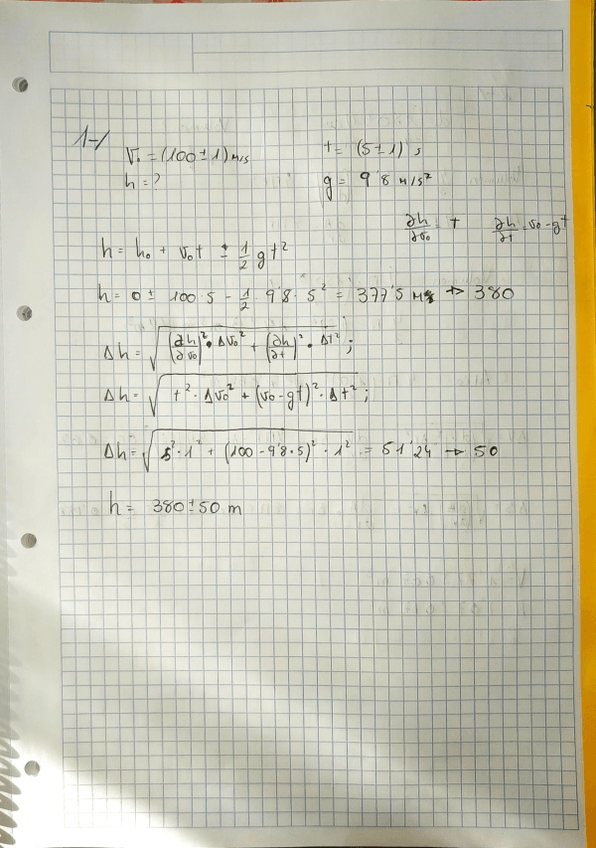 1-/
V₀ = (100 ± 1) m/s t = (5 ± 1) s
h = ? g = 9'8 m/s²
∂h/∂v₀ = t ∂h/∂t = v₀ - gt
h = h₀ + v₀t ± 1/2 gt²
h = 0 ± 100·5 - 1/2 9'8 · 5² = 377'5 m → 380
Δh = √((∂h/∂v₀)² · Δv₀² + (∂h/∂t)² · Δt²);
Δh = √(t² · Δv₀² + (v₀ - gt)² · Δt²);
Δh = √(5² · 1² + (100 - 9'8·5)² · 1²) = 51'24 → 50
h = 380 ± 50 m